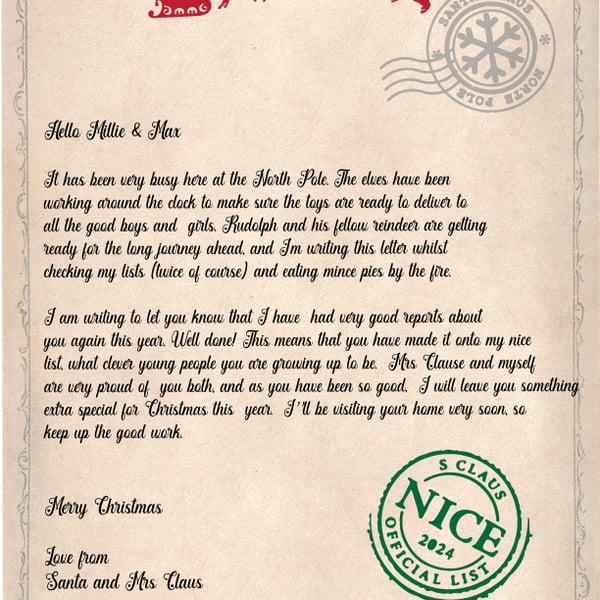 SANTA CLAUS
NORTH POLE
Hello Millie & Max
It has been very busy here at the North Pole. The elves have been
working around the clock to make sure the toys are ready to deliver to
all the good boys and girls. Rudolph and his fellow reindeer are getting
ready for the long journey ahead, and Im writing this letter whilst
checking my lists (twice of course) and eating mince pies by the fire.
I am writing to let you know that I have had very good reports about
you again this year. Well done! This means that you have made it onto my nice
list, what clever young people you are growing up to be. Mrs Clause and myself
are very proud of you both, and as you have been so good, I will leave you something
extra special for Christmas this year. I'll be visiting your home very soon, so
keep up the good work.
Merry Christmas
Love from
Santa and Mrs Claus
S CLAUS
NICE
2024
OFFICIAL LIST